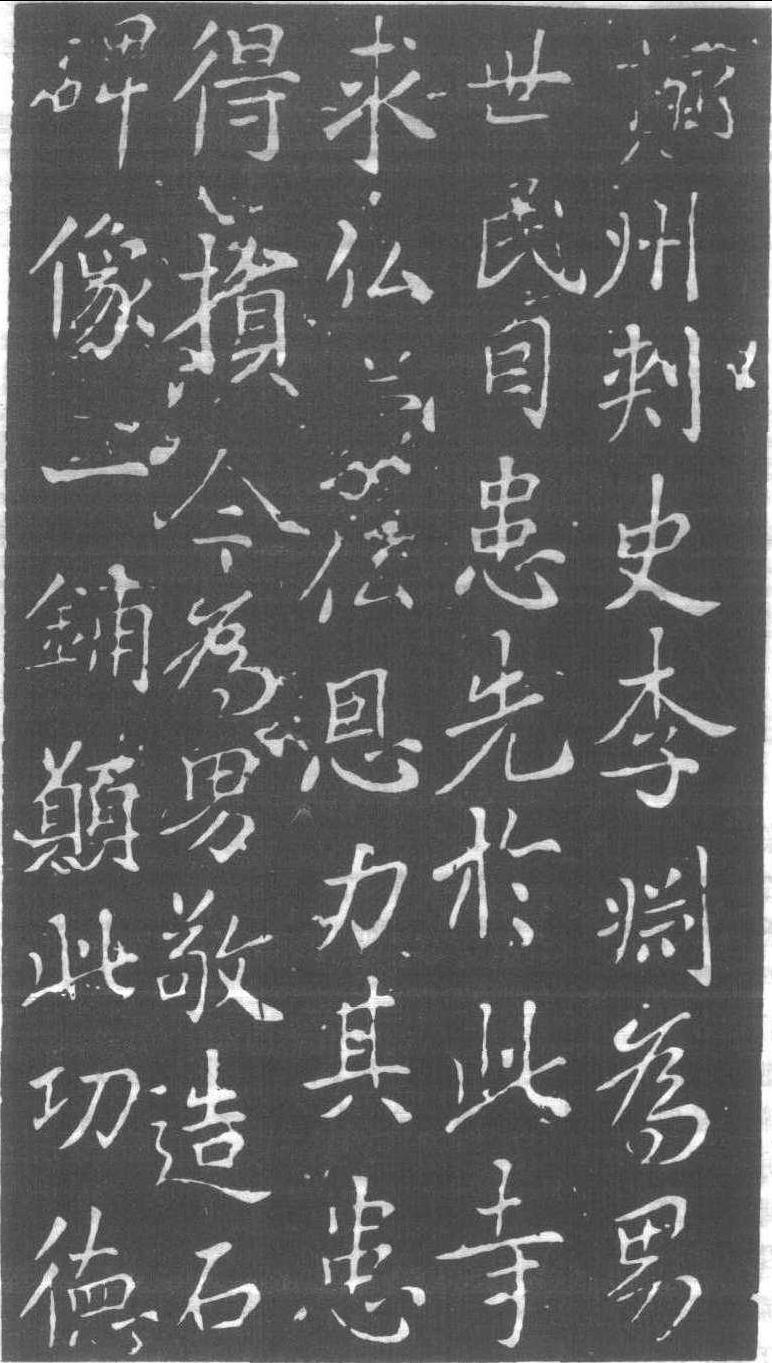 州刺史李渊為男
世民目患先於此寺
求仏
仏恩力其患
得損今為男敬造石
碑像一鋪願此功德